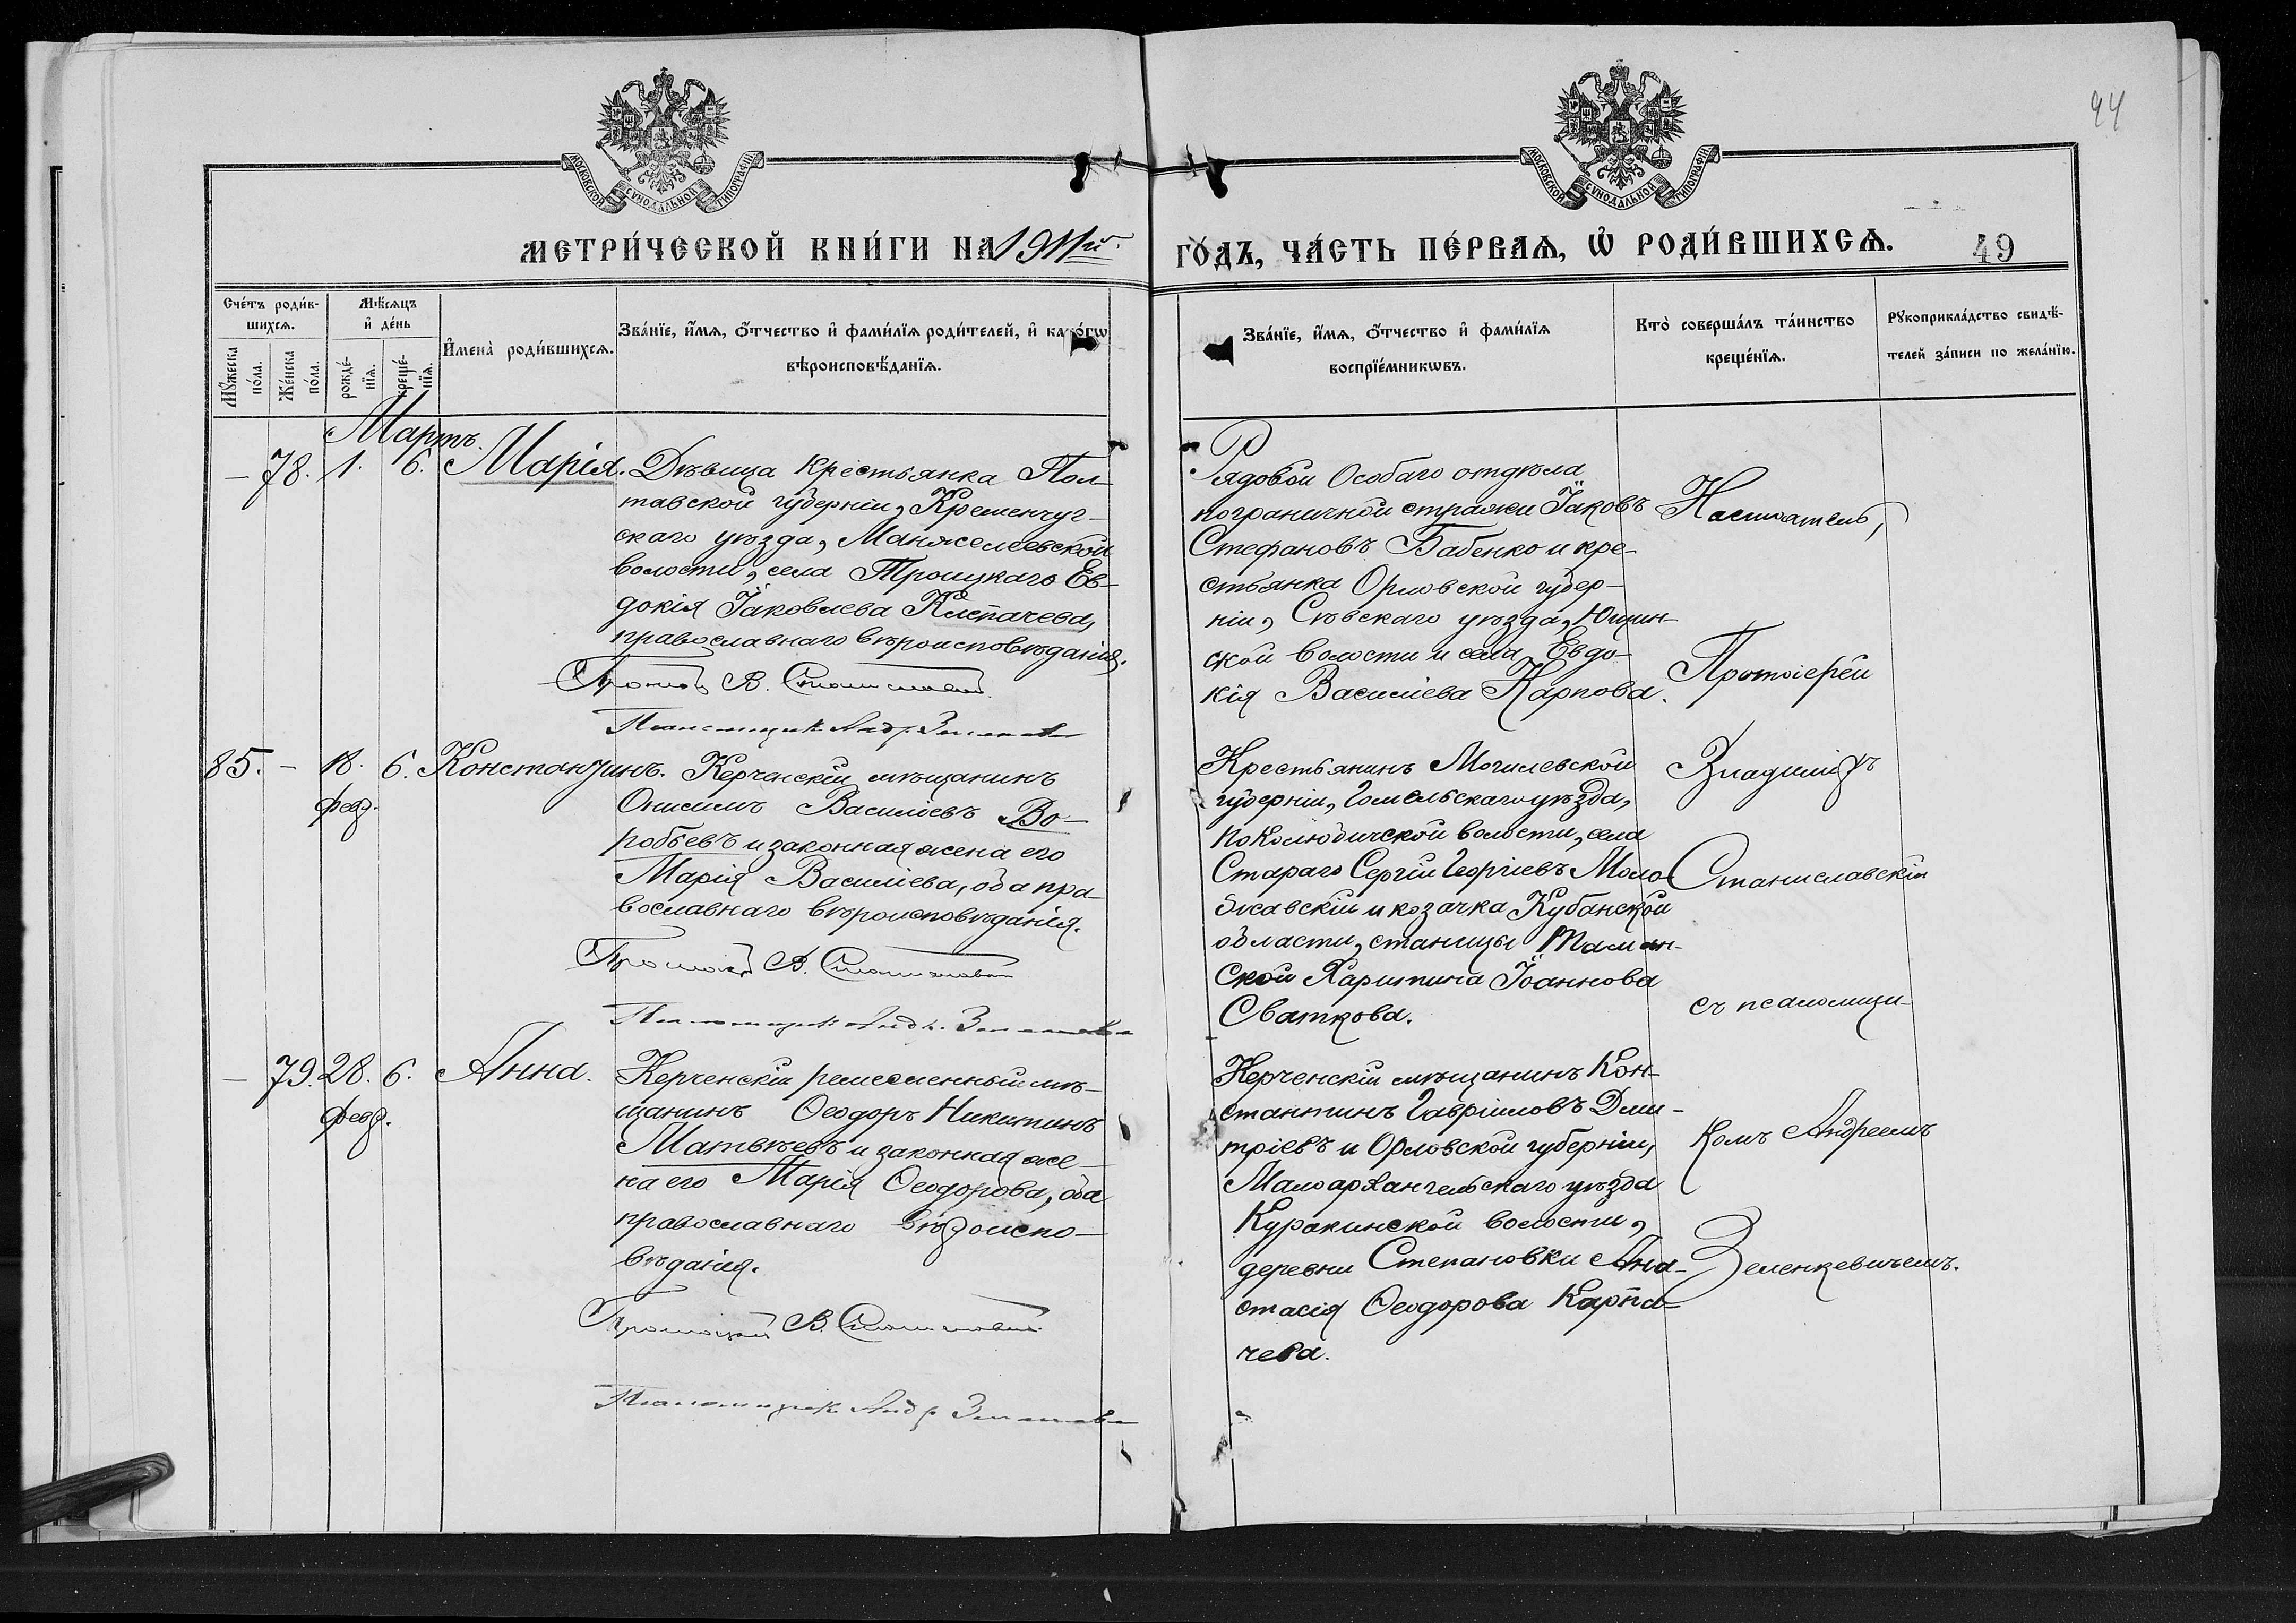 94
МОСКОВСКОЙ СѴНОДАЛЬНОЙ ТИПОГРАФІИ
МОСКОВСКОЙ СѴНОДАЛЬНОЙ ТИПОГРАФІИ
МЕТРИ́ЧЕСКОЙ КНИ́ГИ НА 1911й
ГО́ДЪ, ЧА́СТЬ ПЕ́РВАѦ, Ѿ РОДИ́ВШИХСѦ.
49
Сче́тъ роди́в-
шихсѧ.
Мꙋ́жеска по́ла.
Же́нска по́ла.
Мѣ́сѧцъ
и҆ де́нь
рожде́-
нїѧ.
креще́-
нїѧ.
И҆мена̀ роди́вшихсѧ.
Зва́нїе, и҆́мѧ, ѻ҆́тчество и҆ фами́лїѧ роди́телей, и҆ како́гѡ
вѣроисповѣ́данїѧ.
Зва́нїе, и҆́мѧ, ѻ҆́тчество и҆ фами́лїѧ
воспрїе́мникѡвъ.
Кто̀ соверша́лъ та́инство
креще́нїѧ.
Рꙋкоприкла́дство свидѣ́-
телей за́писи по жела́нїю.
Мартъ.
— 78. 1. 6. Марія.
Дѣвица крестьянка Пол-
тавской губерніи, Кременчуг-
скаго уѣзда, Манжелеевской
волости, села Троицкаго Ев-
докія Іаковлева Клепачева,
православнаго вѣроисповѣданія.
В. Станиславскій
Псаломщикъ Андр.
Рядовой Особаго отдѣла
пограничной стражи Іаковъ
Стефановъ Бабенко и кре-
стьянка Орловской губер-
ніи, Сѣвскаго уѣзда, Юшин-
ской волости и села Евдо-
кія Василіева Карпова.
85. — 18. 6. Константинъ.
февр.
Керченскій мѣщанинъ
Онисимъ Василіевъ Во-
робьевъ и законная жена его
Марія Василіева, оба пра-
вославнаго вѣроисповѣданія.
Протоіерей В. Станиславскій
Псаломщикъ Андр.
Крестьянинъ Могилевской
губерніи, Гомельскаго уѣзда,
Поколюбичской волости, села
Стараго Сергій Георгіевъ Моло-
жавскій и козачка Кубанской
области, станицы Таман-
ской Харитина Іоаннова
Сваткова.
— 79. 28. 6. Анна.
февр.
Керченскій ремесленный мѣ-
щанинъ Ѳеодоръ Никитинъ
Матвѣевъ и законная же-
на его Марія Ѳеодорова, оба
православнаго вѣроиспо-
вѣданія.
Протоіерей В. Станиславскій
Псаломщикъ Андр.
Керченскій мѣщанинъ Кон-
стантинъ Гавріиловъ Дми-
тріевъ и Орловской губерніи,
Малоархангельскаго уѣзда
Куракинской волости,
деревни Степановки Ана-
стасія Ѳеодорова Карпа-
чева.
Настоятель,
Протоіерей
Владиміръ
Станиславскій
съ псаломщи-
комъ Андреемъ
Зеленкевичемъ.